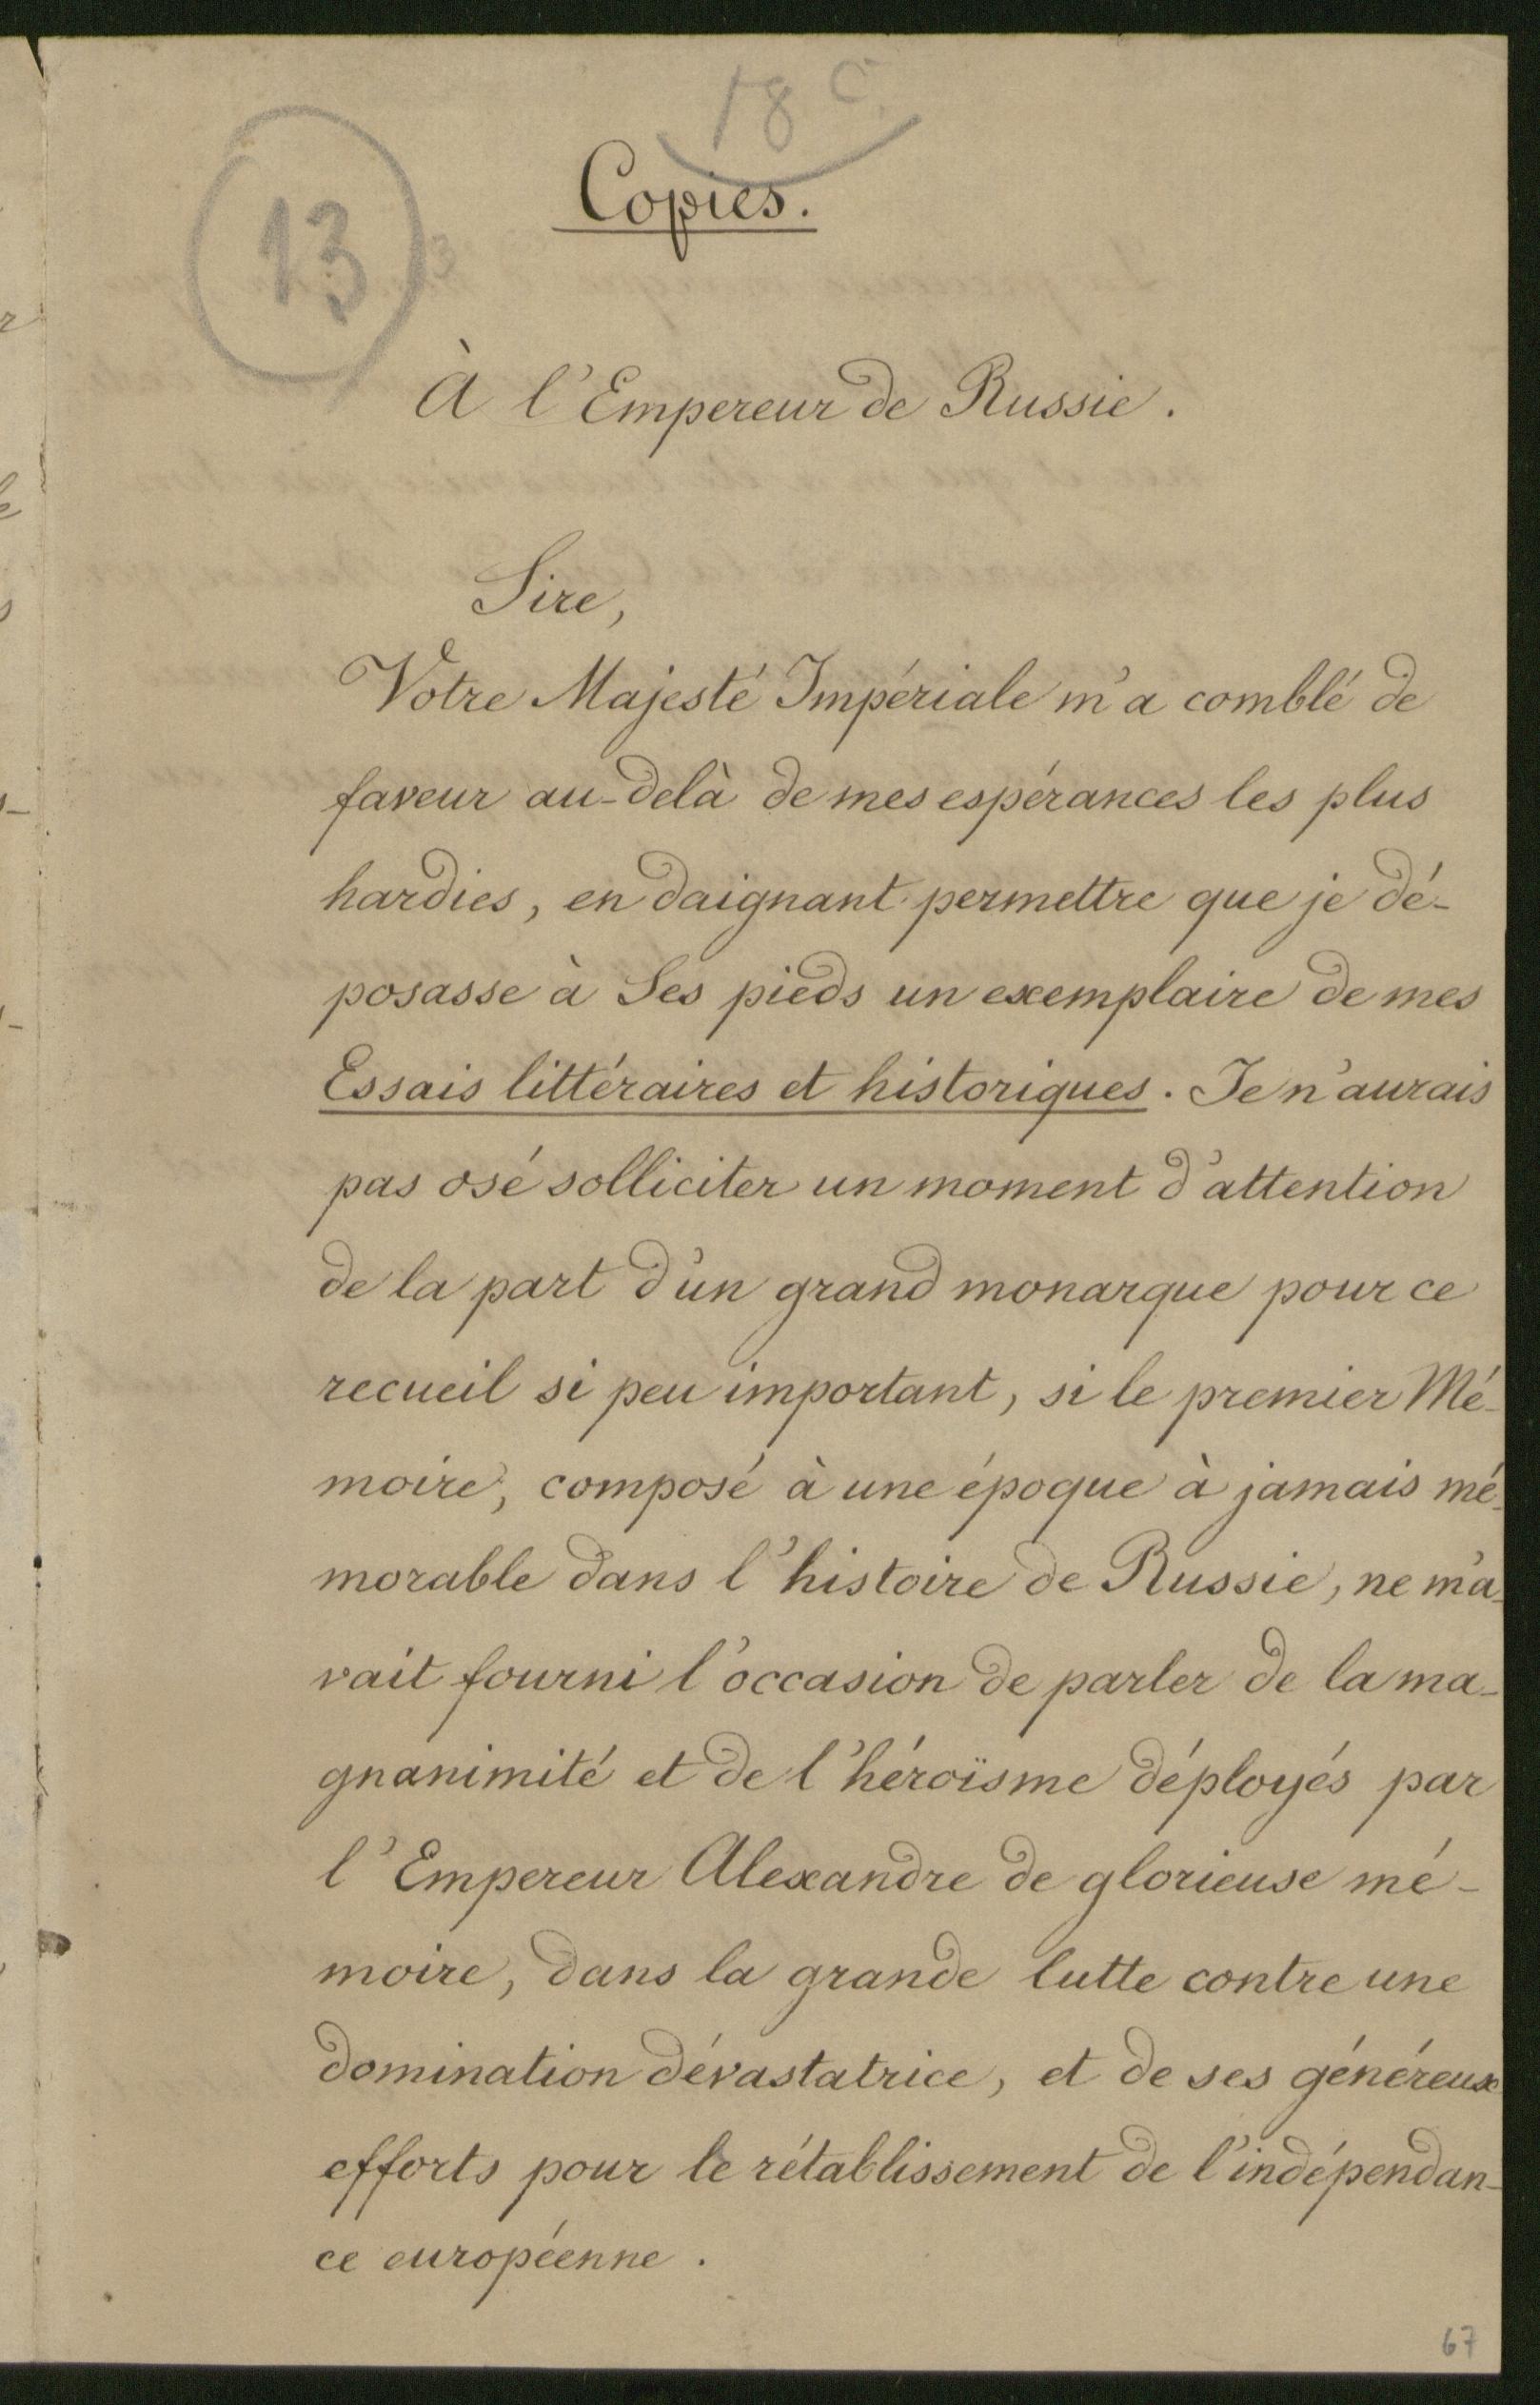 18 c
13
Copies.
À l'Empereur de Russie.
Sire,
Votre Majesté Impériale m'a comblé de
faveur au-delà de mes espérances les plus
hardies, en daignant permettre que je dé-
posasse à Ses pieds un exemplaire de mes
Essais littéraires et historiques. Je n'aurais
pas osé solliciter un moment d'attention
de la part d'un grand monarque pour ce
recueil si peu important, si le premier Mé-
moire, composé à une époque à jamais mé-
morable dans l'histoire de Russie, ne m'a-
vait fourni l'occasion de parler de la ma-
gnanimité et de l'héroïsme déployés par
l'Empereur Alexandre de glorieuse mé-
moire, dans la grande lutte contre une
domination dévastatrice, et de ses généreux
efforts pour le rétablissement de l'indépendan-
ce européenne.
67